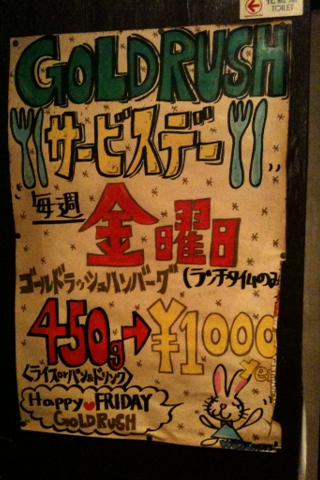 化粧室
TOILET
GOLDRUSH
サービスデー
毎週
金曜日
ゴールドラッシュハンバーグ(ランチタイムのみ
450g→¥1000
Yen
〈ライスorパン&ドリンク〉
Happy FRIDAY
GOLDRUSH